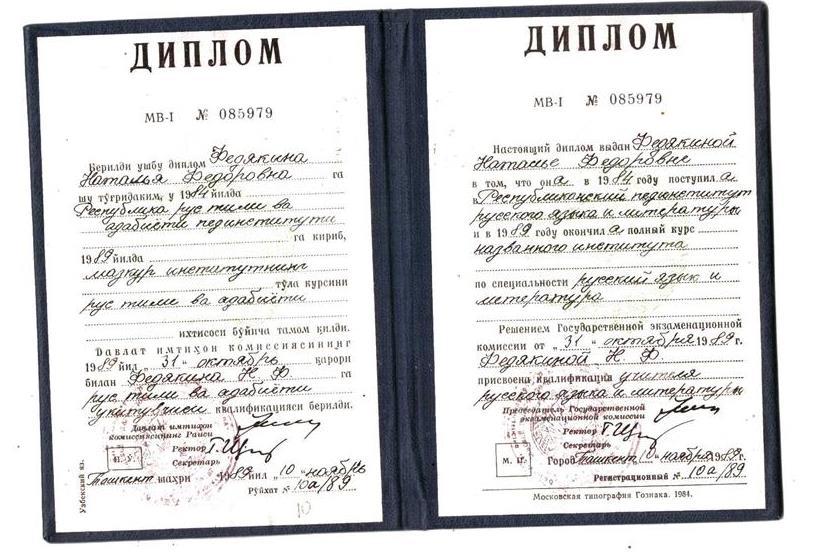 ДИПЛОМ
МВ-I № 085979
Берилди ушбу диплом Федякина
Наталья Федоровна га
шу тўғридаким, у 1984 йилда
Республика рус тили ва
адабиёти пединститути
га кириб,
1989 йилда
мазкур институтнинг
тўла курсини
рус тили ва адабиёти
ихтисоси бўйича тамом қилди.
Давлат имтиҳон комиссиясининг
1989 йил „31“ октябрь қарори
билан Федякина Н. Ф. га
рус тили ва адабиёти
уқитувчиси квалификацияси берилди.
Давлат имтиҳон
комиссиясининг Раиси
Ректор
Секретарь
М. Ў.
Тошкент шаҳри 1989 йил „10“ ноябрь
Рўйхат № 10а/89
Узбекский яз.
10
ДИПЛОМ
МВ-I № 085979
Настоящий диплом выдан Федякиной
Наталье Федоровне
в том, что она в 1984 году поступила
в Республиканский пединститут
русского языка и литературы
и в 1989 году окончила полный курс
названного института
по специальности русский язык и
литература
Решением Государственной экзаменационной
комиссии от „31“ октября 1989 г.
Федякиной Н. Ф.
присвоена квалификация учителя
русского языка и литературы
Председатель Государственной
экзаменационной комиссии
Ректор
Секретарь
М. П.
Город Ташкент 10 ноября 1989 г.
Регистрационный № 10а/89
Московская типография Гознака. 1984.